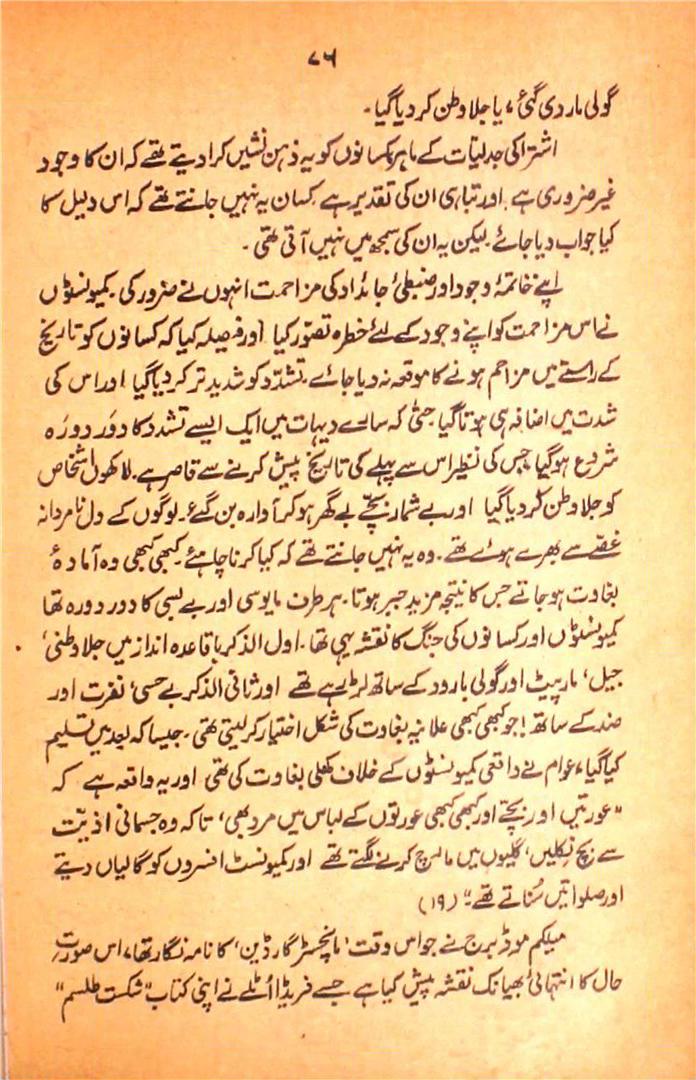 ۷۶
گولی مار دی گئی، یا جلا وطن کر دیا گیا۔
اشتراکی جدلیات کے ماہر کسانوں کو یہ ذہن نشیں کرا دیتے تھے کہ ان کا وجود
غیر ضروری ہے اور تباہی ان کی تقدیر ہے کسان یہ نہیں جانتے تھے کہ اس دلیل کا
کیا جواب دیا جائے لیکن یہ ان کی سمجھ میں نہیں آتی تھی۔
اپنے خاتمۂ وجود اور ضبطیٔ جائداد کی مزاحمت انہوں نے ضرور کی۔ کمیونسٹوں
نے اس مزاحمت کو اپنے وجود کے لئے خطرہ تصوّر کیا اور فیصلہ کیا کہ کسانوں کو تاریخ
کے راستے میں مزاحم ہونے کا موقعہ نہ دیا جائے۔ تشدّد کو شدید تر کر دیا گیا اور اس کی
شدت میں اضافہ ہی ہوتا گیا۔ حتیٰ کہ سارے دیہات میں ایک ایسے تشدد کا دَور دورَہ
شروع ہو گیا جس کی نظیر اس سے پہلے کی تاریخ پیش کرنے سے قاصر ہے۔ لاکھوں اشخاص
کو جلا وطن کر دیا گیا اور بے شمار بچّے بے گھر ہو کر آوارہ بن گئے۔ لوگوں کے دل نامردانہ
غصّے سے بھرے ہوئے تھے۔ وہ یہ نہیں جانتے تھے کہ کیا کرنا چاہئے۔ کبھی کبھی وہ آمادۂ
بغاوت ہو جاتے جس کا نتیجہ مزید جبر ہوتا۔ ہر طرف مایوسی اور بے بسی کا دور دورہ تھا
کمیونسٹوں اور کسانوں کی جنگ کا نقشہ یہی تھا۔ اول الذکر باقاعدہ انداز میں جلا وطنی،
جیل، مار پیٹ اور گولی بارود کے ساتھ لڑ رہے تھے اور ثانی الذکر بے حسی، نفرت اور
ضد کے ساتھ! جو کبھی کبھی علانیہ بغاوت کی شکل اختیار کر لیتی تھی۔ جیسا کہ بعد میں تسلیم
کیا گیا، عوام نے واقعی کمیونسٹوں کے خلاف کھلی بغاوت کی تھی اور یہ واقعہ ہے کہ
"عورتیں اور بچّے اور کبھی کبھی عورتوں کے لباس میں مرد بھی، تاکہ وہ جسمانی اذیّت
سے بچ نکلیں، گلیوں میں مارچ کرنے لگتے تھے اور کمیونسٹ افسروں کو گالیاں دیتے
اور صلواتیں سُناتے تھے۔" (۱۹)
میلکم موڈبرج نے جو اس وقت 'مانچسٹر گارڈین' کا نامہ نگار تھا، اس صورتِ
حال کا انتہائی بھیانک نقشہ پیش کیا ہے جسے فریڈا اٹلے نے اپنی کتاب "شکست طلسم"